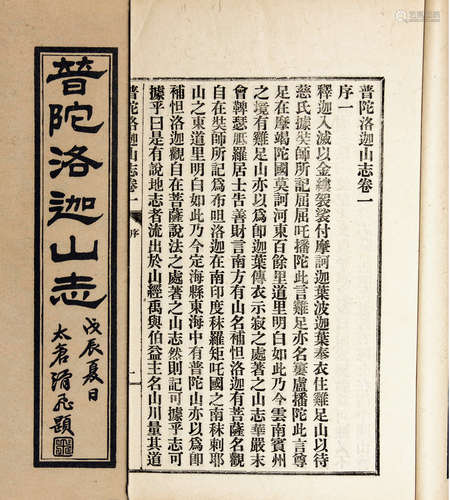 普陀洛迦山志
戊辰夏日
太倉
題
普陀洛迦山志卷一
序一
釋迦入滅以金縷袈裟付摩訶迦葉波迦葉奉衣住雞足山以待
慈氏據奘師所記屈屈吒播陀此言雞足亦名窶盧播陀此言尊
足在摩竭陀國莫訶河東百餘里道里明白如此乃今雲南賓州
之境有雞足山亦以為即迦葉傳衣示寂之處著之山志華嚴末
會鞞瑟胝羅居士告善財言南方有山名補怛洛迦有菩薩名觀
自在奘師所記為布呾洛迦在南印度秣羅矩吒國之南秣剌耶
山之東道里明白如此乃今定海縣東海中有普陀山亦以為即
補怛洛迦觀自在菩薩說法之處著之山志然則記可據乎志可
據乎曰是有說地志者流出於山經禹與伯益主名山川量其道
普陀洛迦山志卷一
序
一